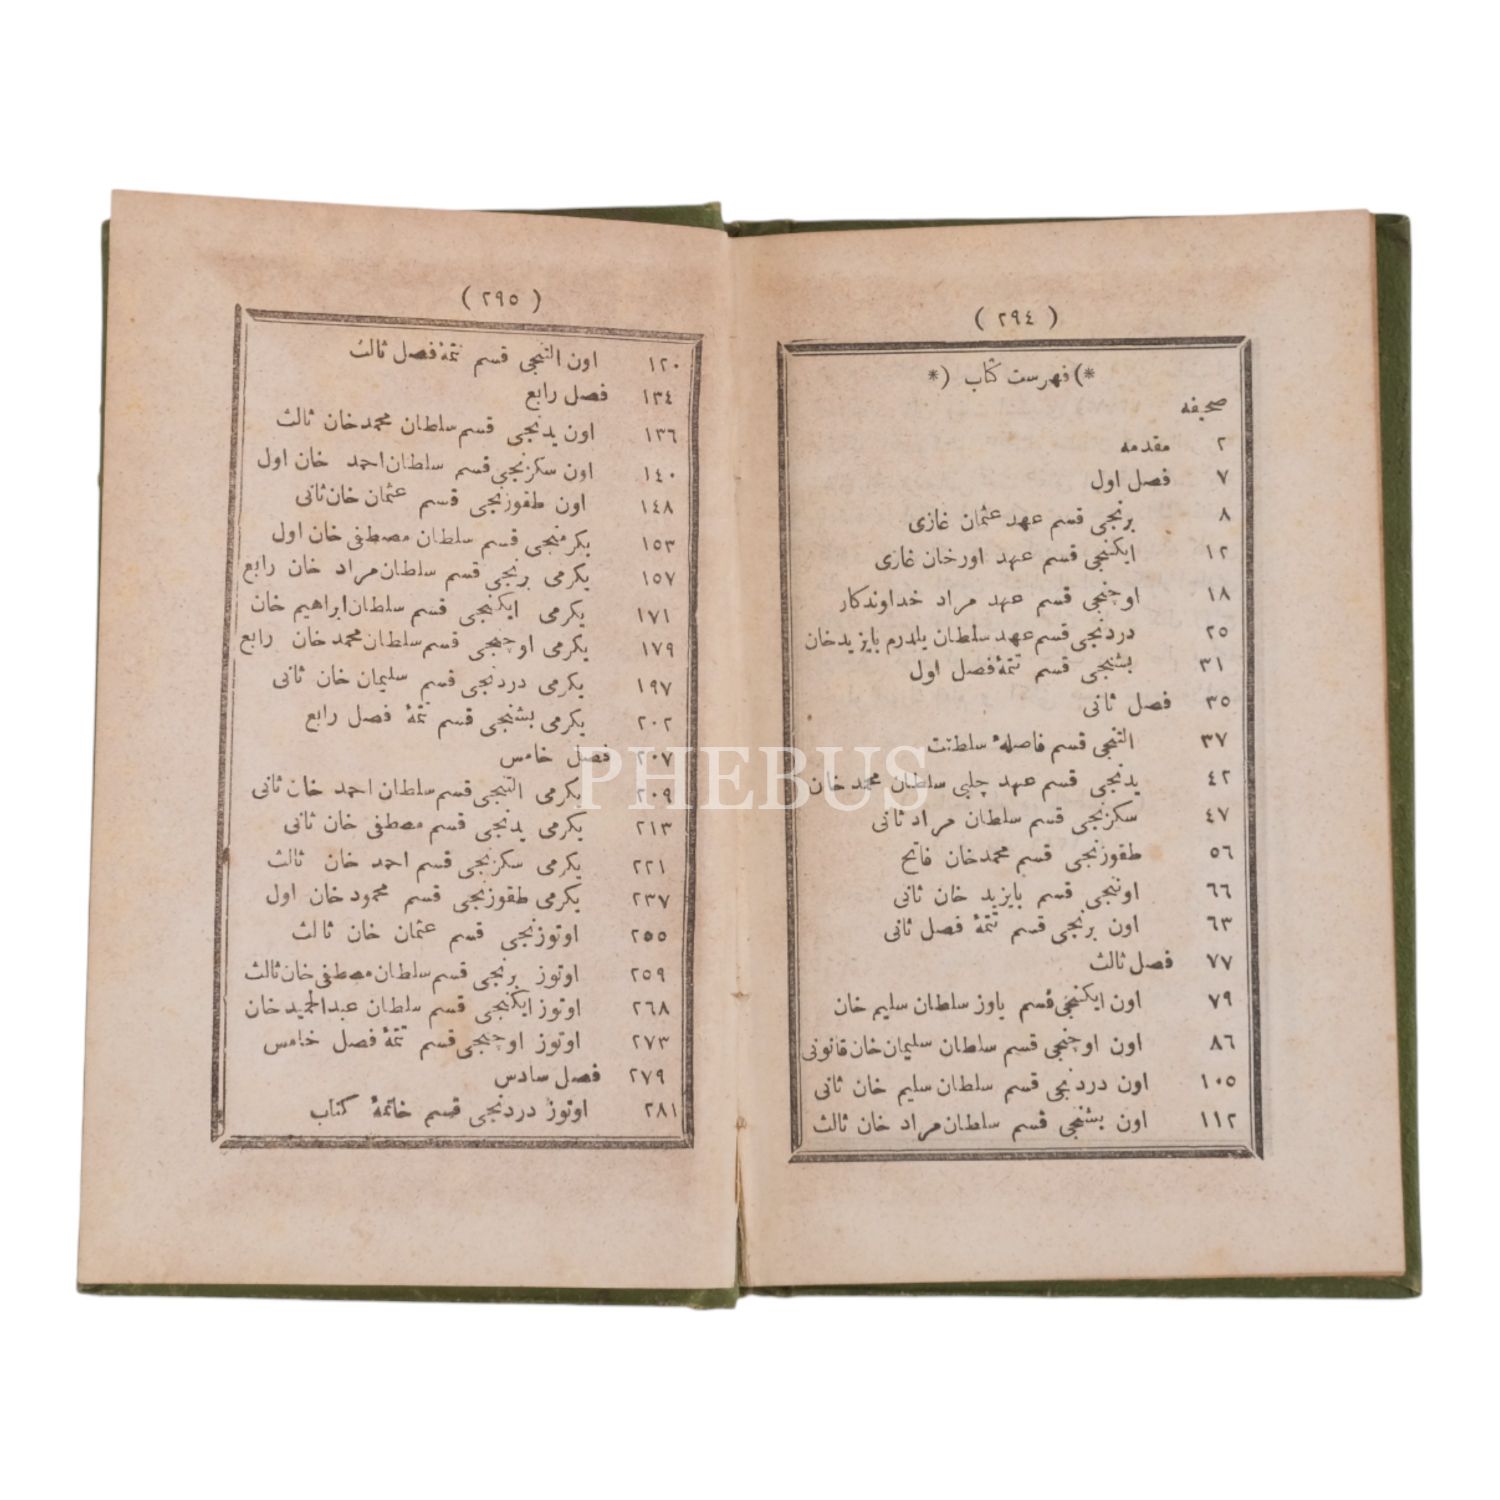 ( ٢٩٤ )
*) فهرست كتاب (*
صحيفه
٢ مقدمه
٧ فصل اول
٨ برنجى قسم عهد عثمان غازى
١٢ ايكنجى قسم عهد اورخان غازى
١٨ اوچنجى قسم عهد مراد خداوندكار
٢٥ دردنجى قسم عهد سلطان يلدرم بايزيد خان
٣١ بشنجى قسم تتمۀ فصل اول
٣٥ فصل ثانى
٣٧ التنجى قسم فاصلۀ سلطنت
٤٢ يدنجى قسم عهد چلبى سلطان محمد خان
٤٧ سكزنجى قسم سلطان مراد ثانى
٥٦ طقوزنجى قسم محمد خان فاتح
٦٦ اوننجى قسم بايزيد خان ثانى
٦٣ اون برنجى قسم تتمۀ فصل ثانى
٧٧ فصل ثالث
٧٩ اون ايكنجى قسم ياوز سلطان سليم خان
٨٦ اون اوچنجى قسم سلطان سليمان خان قانونى
١٠٥ اون دردنجى قسم سلطان سليم خان ثانى
١١٢ اون بشنجى قسم سلطان مراد خان ثالث
( ٢٩٥ )
١٢٠ اون التنجى قسم تتمۀ فصل ثالث
١٣٤ فصل رابع
١٣٦ اون يدنجى قسم سلطان محمد خان ثالث
١٤٠ اون سكزنجى قسم سلطان احمد خان اول
١٤٨ اون طقوزنجى قسم عثمان خان ثانى
١٥٣ يكرمنجى قسم سلطان مصطفى خان اول
١٥٧ يكرمى برنجى قسم سلطان مراد خان رابع
١٧١ يكرمى ايكنجى قسم سلطان ابراهيم خان
١٧٩ يكرمى اوچنجى قسم سلطان محمد خان رابع
١٩٧ يكرمى دردنجى قسم سليمان خان ثانى
٢٠٢ يكرمى بشنجى قسم تتمۀ فصل رابع
٢٠٧ فصل خامس
٢٠٩ يكرمى التنجى قسم سلطان احمد خان ثانى
٢١٣ يكرمى يدنجى قسم مصطفى خان ثانى
٢٢١ يكرمى سكزنجى قسم احمد خان ثالث
٢٣٧ يكرمى طقوزنجى قسم محمود خان اول
٢٥٥ اوتوزنجى قسم عثمان خان ثالث
٢٥٩ اوتوز برنجى قسم سلطان مصطفى خان ثالث
٢٦٨ اوتوز ايكنجى قسم سلطان عبدالحميد خان
٢٧٣ اوتوز اوچنجى قسم تتمۀ فصل خامس
٢٧٩ فصل سادس
٢٨١ اوتوز دردنجى قسم خاتمۀ كتاب
PHEBUS